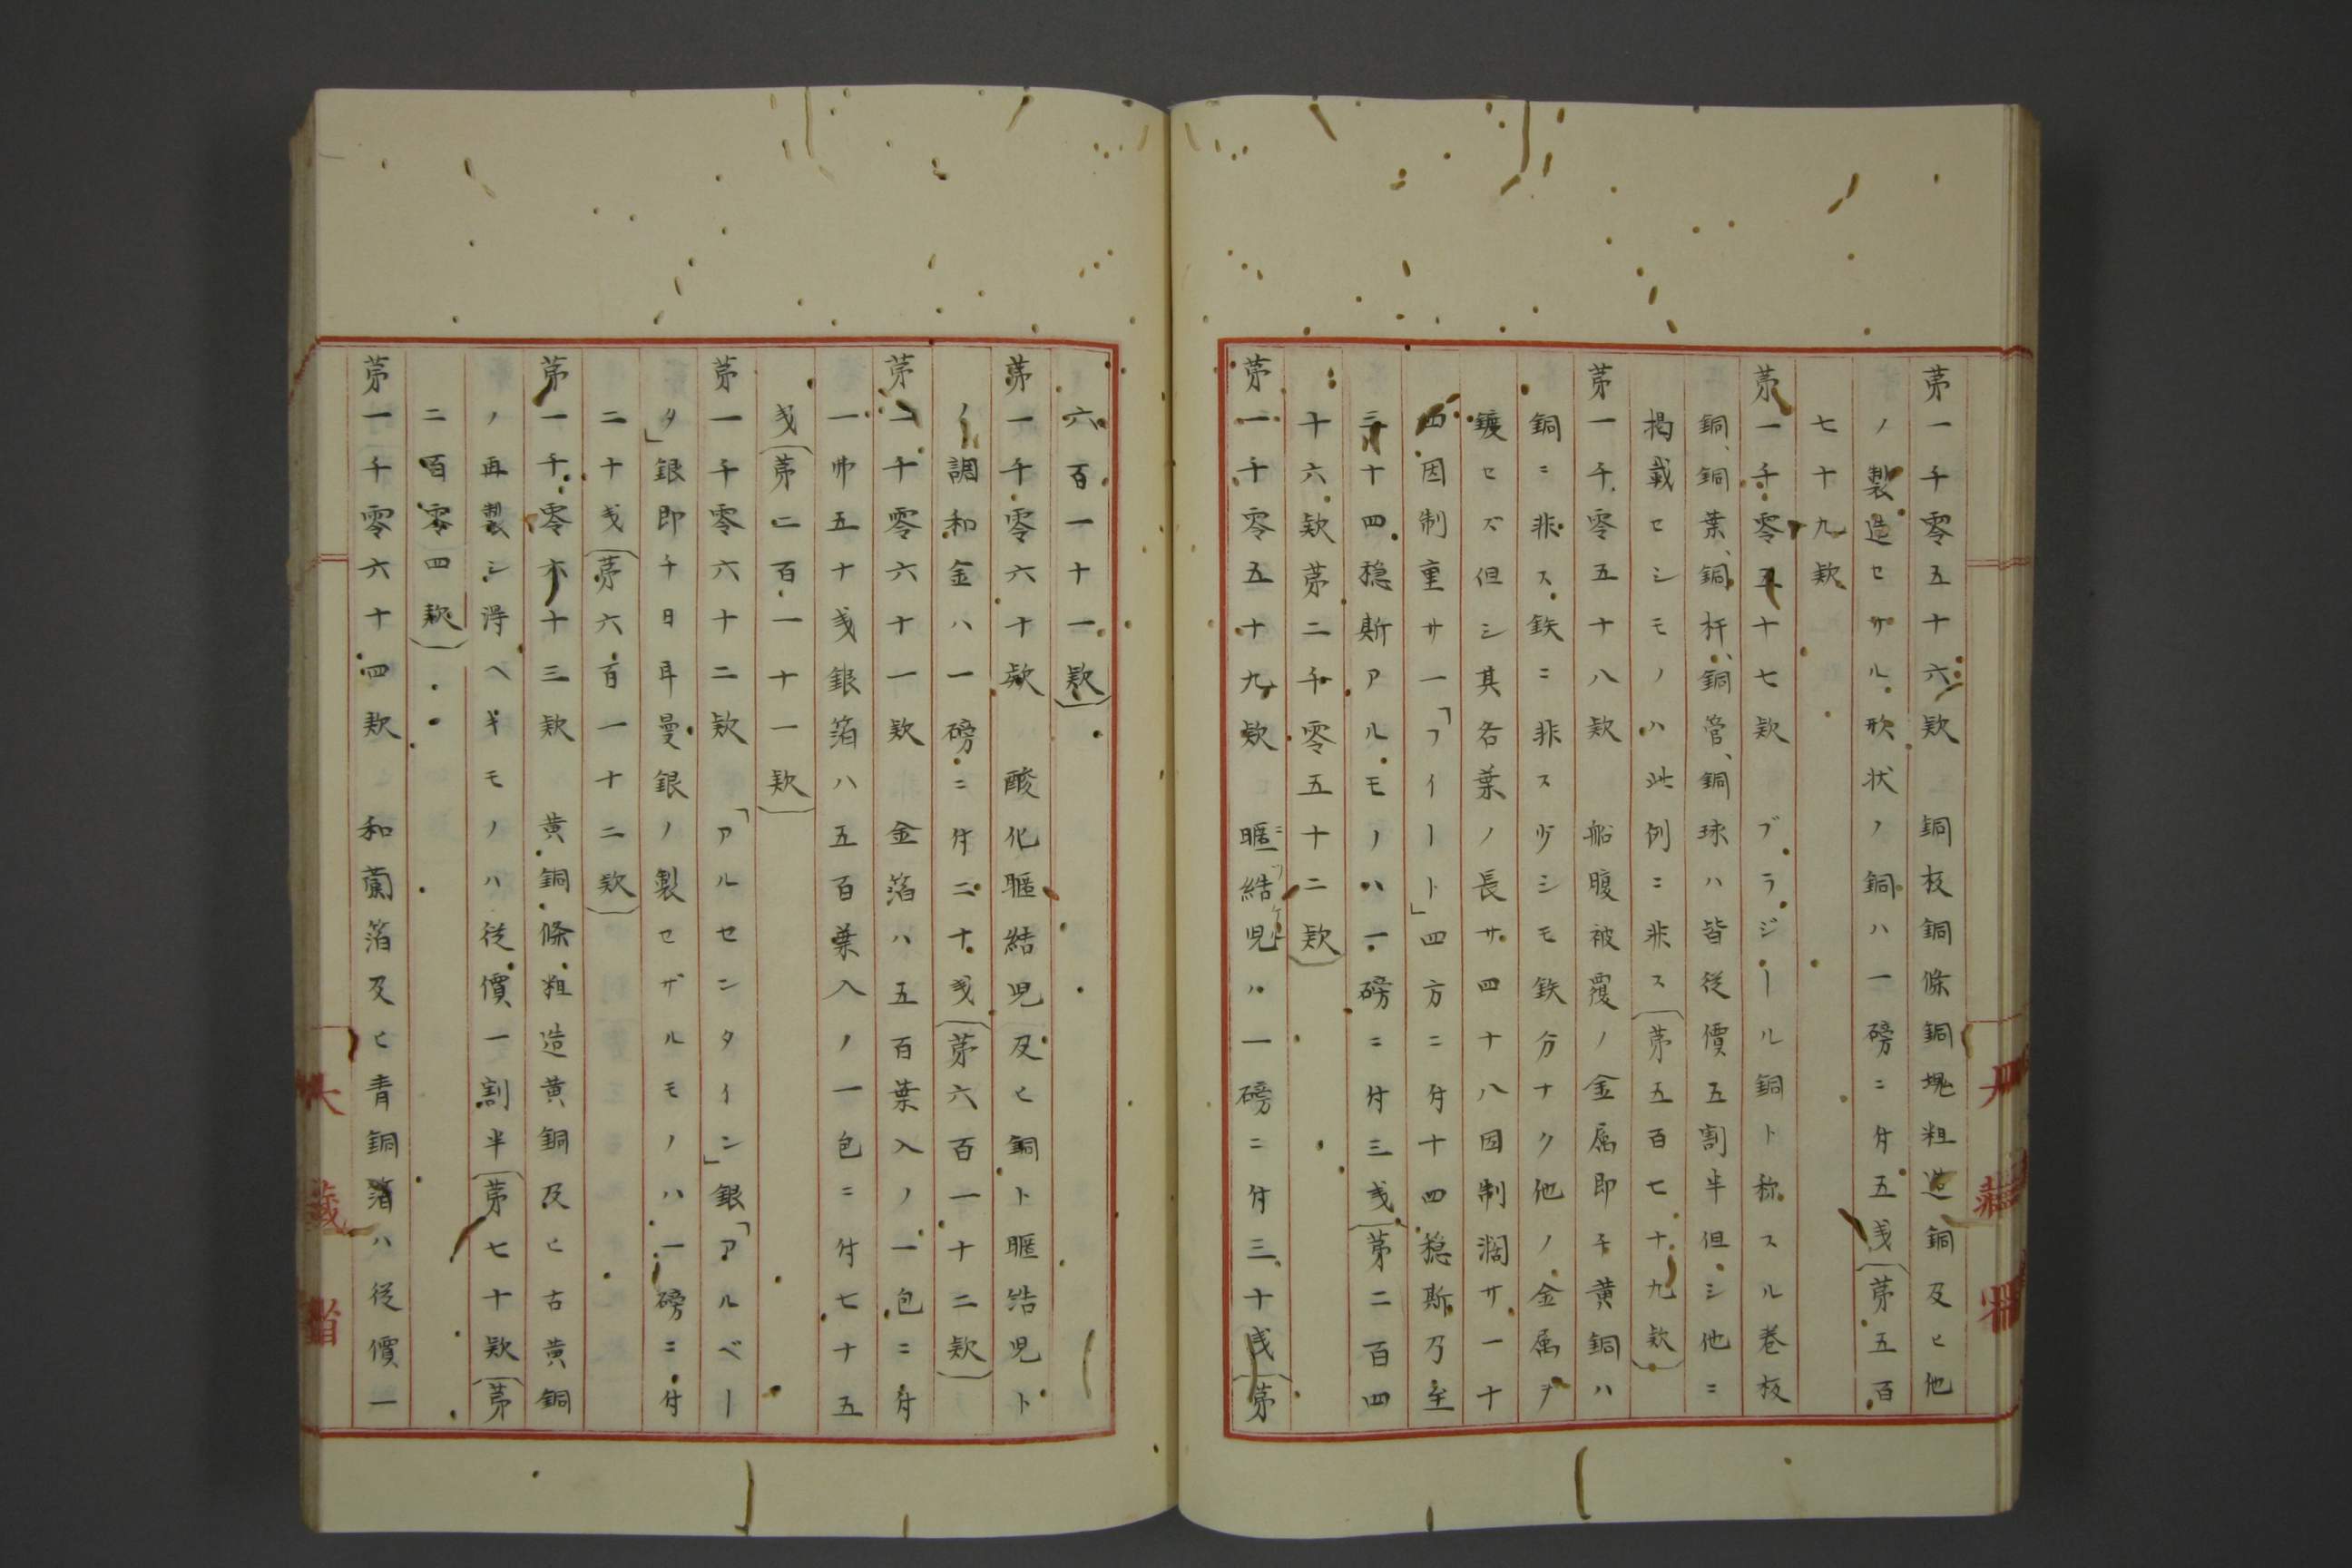 第一千零五十六款　銅板銅條銅塊粗造銅及ヒ他
ノ製造セサル形状ノ銅ハ一磅ニ付五戔（第五百
七十九款
第一千零五十七款　ブラジール銅ト称スル巻板
銅、銅葉、銅杆、銅管、銅球ハ皆従價五割半但シ他ニ
掲載セシモノハ此例ニ非ス（第五百七十九款）
第一千零五十八款　船腹被覆ノ金属即チ黄銅ハ
銅ニ非ス鉄ニ非ス少シモ鉄分ナク他ノ金属ヲ
鍍セズ但シ其各葉ノ長サ四十八因制濶サ一十
四因制重サ一「フイート」四方ニ付十四穏斯乃至
三十四穏斯アルモノハ一磅ニ付三戔（第二百四
十六款第二千零五十二款）
第一千零五十九款　暱結児ハ一磅ニ付三十戔（第
六百一十一款）
第一千零六十款　酸化暱結児及ヒ銅ト暱結児ト
ノ調和金ハ一磅ニ付二十戔（第六百一十二款）
第一千零六十一款　金箔ハ五百葉入ノ一包ニ付
一弗五十戔銀箔ハ五百葉入ノ一包ニ付七十五
戔（第二百一十一款）
第一千零六十二款　「アルセンタイン」銀「アルベー
タ」銀即チ日耳曼銀ノ製セザルモノハ一磅ニ付
二十戔（第六百一十二款）
第一千零六十三款　黄銅條粗造黄銅及ヒ古黄銅
ノ再製シ得ヘキモノハ従價一割半（第七十款（第
二百零四款）
第一千零六十四款　和蘭箔及ヒ青銅箔ハ従價一